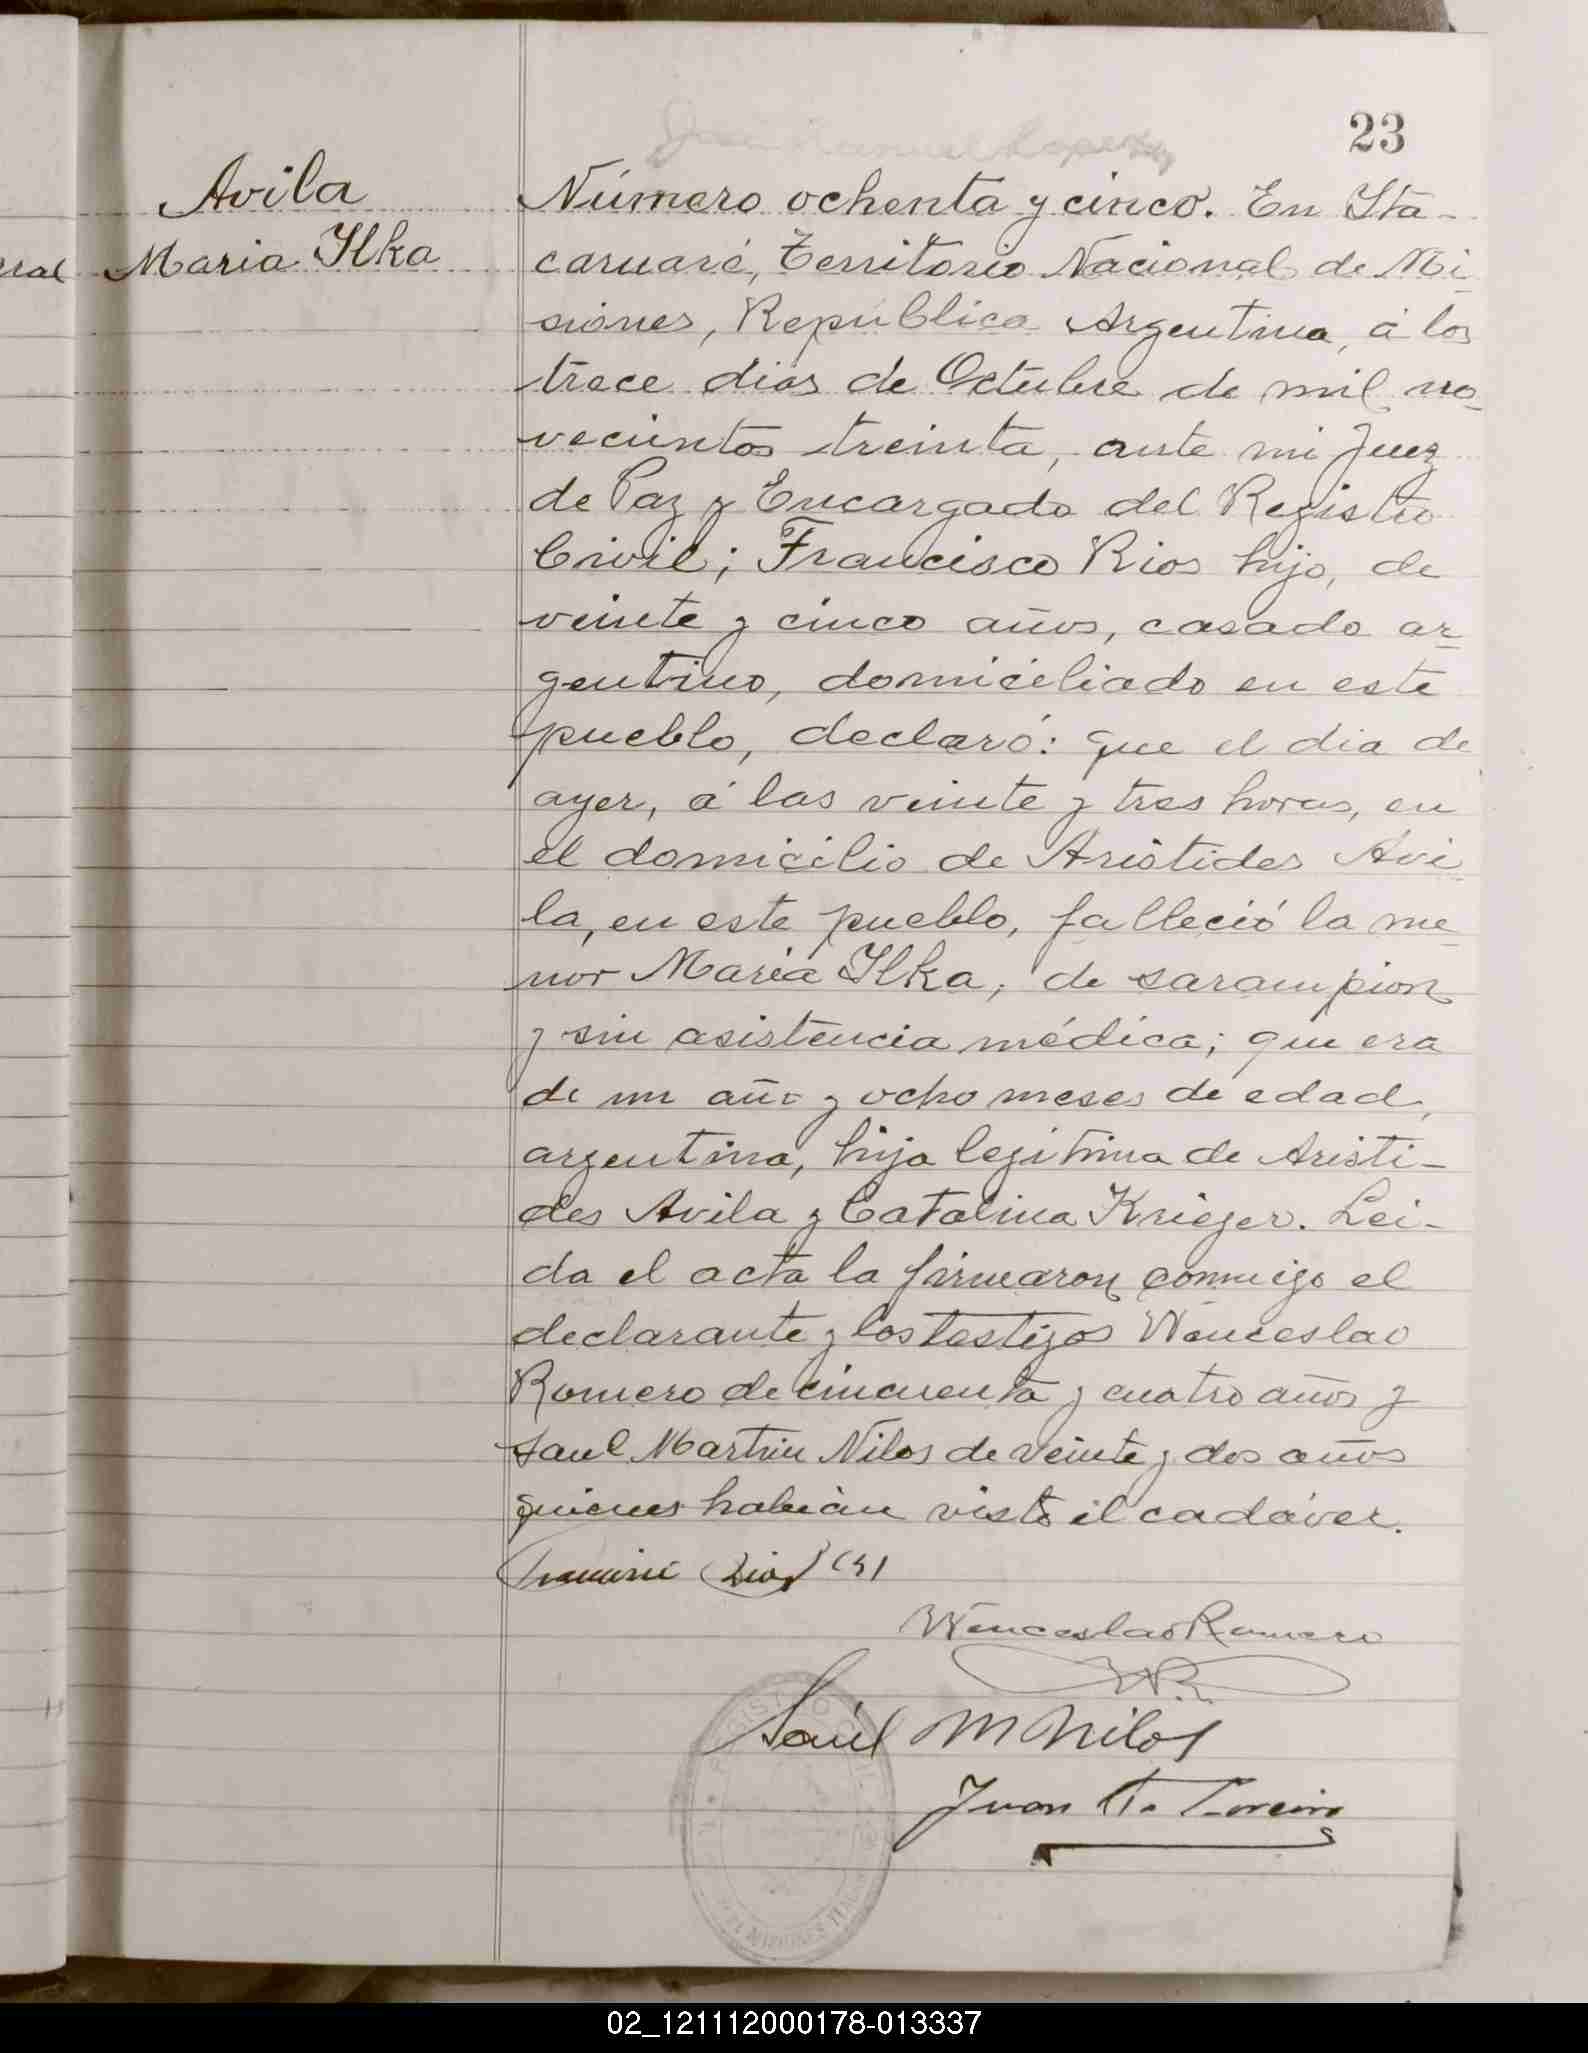 23
Avila
Maria Ilka
Número ochenta y cinco. En Ita-
caruaré, Territorio Nacional de Mi-
siones, República Argentina, á los
trece dias de Octubre de mil no-
vecientos treinta, ante mi Juez
de Paz y Encargado del Registro
Civil; Francisco Rios hijo, de
veinte y cinco años, casado ar-
gentino, domiciliado en este
pueblo, declaró: que el dia de
ayer, á las veinte y tres horas, en
el domicilio de Aristides Avi-
la, en este pueblo, falleció la me-
nor Maria Ilka, de sarampion
y sin asistencia médica; que era
de un año y ocho meses de edad,
argentina, hija legitima de Aristi-
des Avila y Catalina Krieger. Lei-
da el acta la firmaron conmigo el
declarante y los testigos Wenceslao
Romero de cincuenta y cuatro años y
Saul Martin Nilos de veinte y dos años
quienes habian visto el cadáver.
Wenceslao Romero
WR.
Saúl M Nilos
Juan
02_121112000178-013337